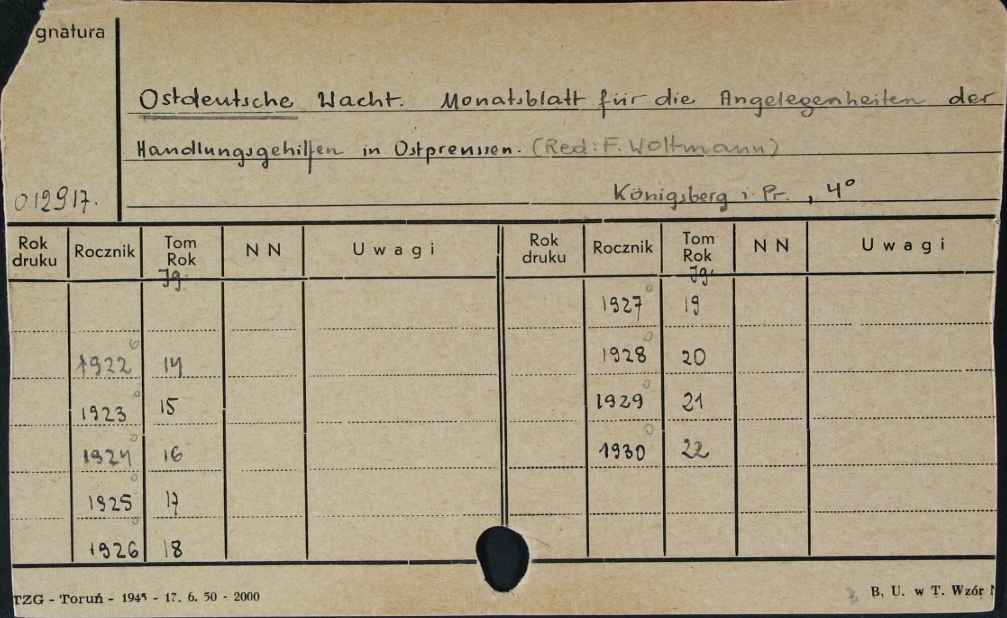 gnatura
Ostdeutsche Wacht. Monatsblatt für die Angelegenheiten der
Handlungsgehilfen in Ostpreussen. (Red: F. Woltmann)
012917.
Königsberg i. Pr. , 4°
Rok druku Rocznik Tom Rok N N U w a g i Rok druku Rocznik Tom Rok N N U w a g i
Jg. Jg.
1927° 19
1922° 14 1928° 20
1923° 15 1929° 21
1924° 16 1930° 22
1925° 17
1926° 18
TZG - Toruń - 1945 - 17. 6. 50 - 2000 B. U. w T. Wzór